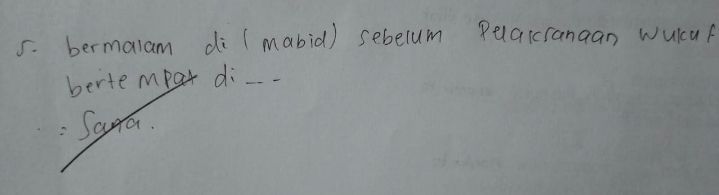 5. bermalam di (mabid) sebelum Pelaksanaan Wukuf
bertempat di ---
= Sana.